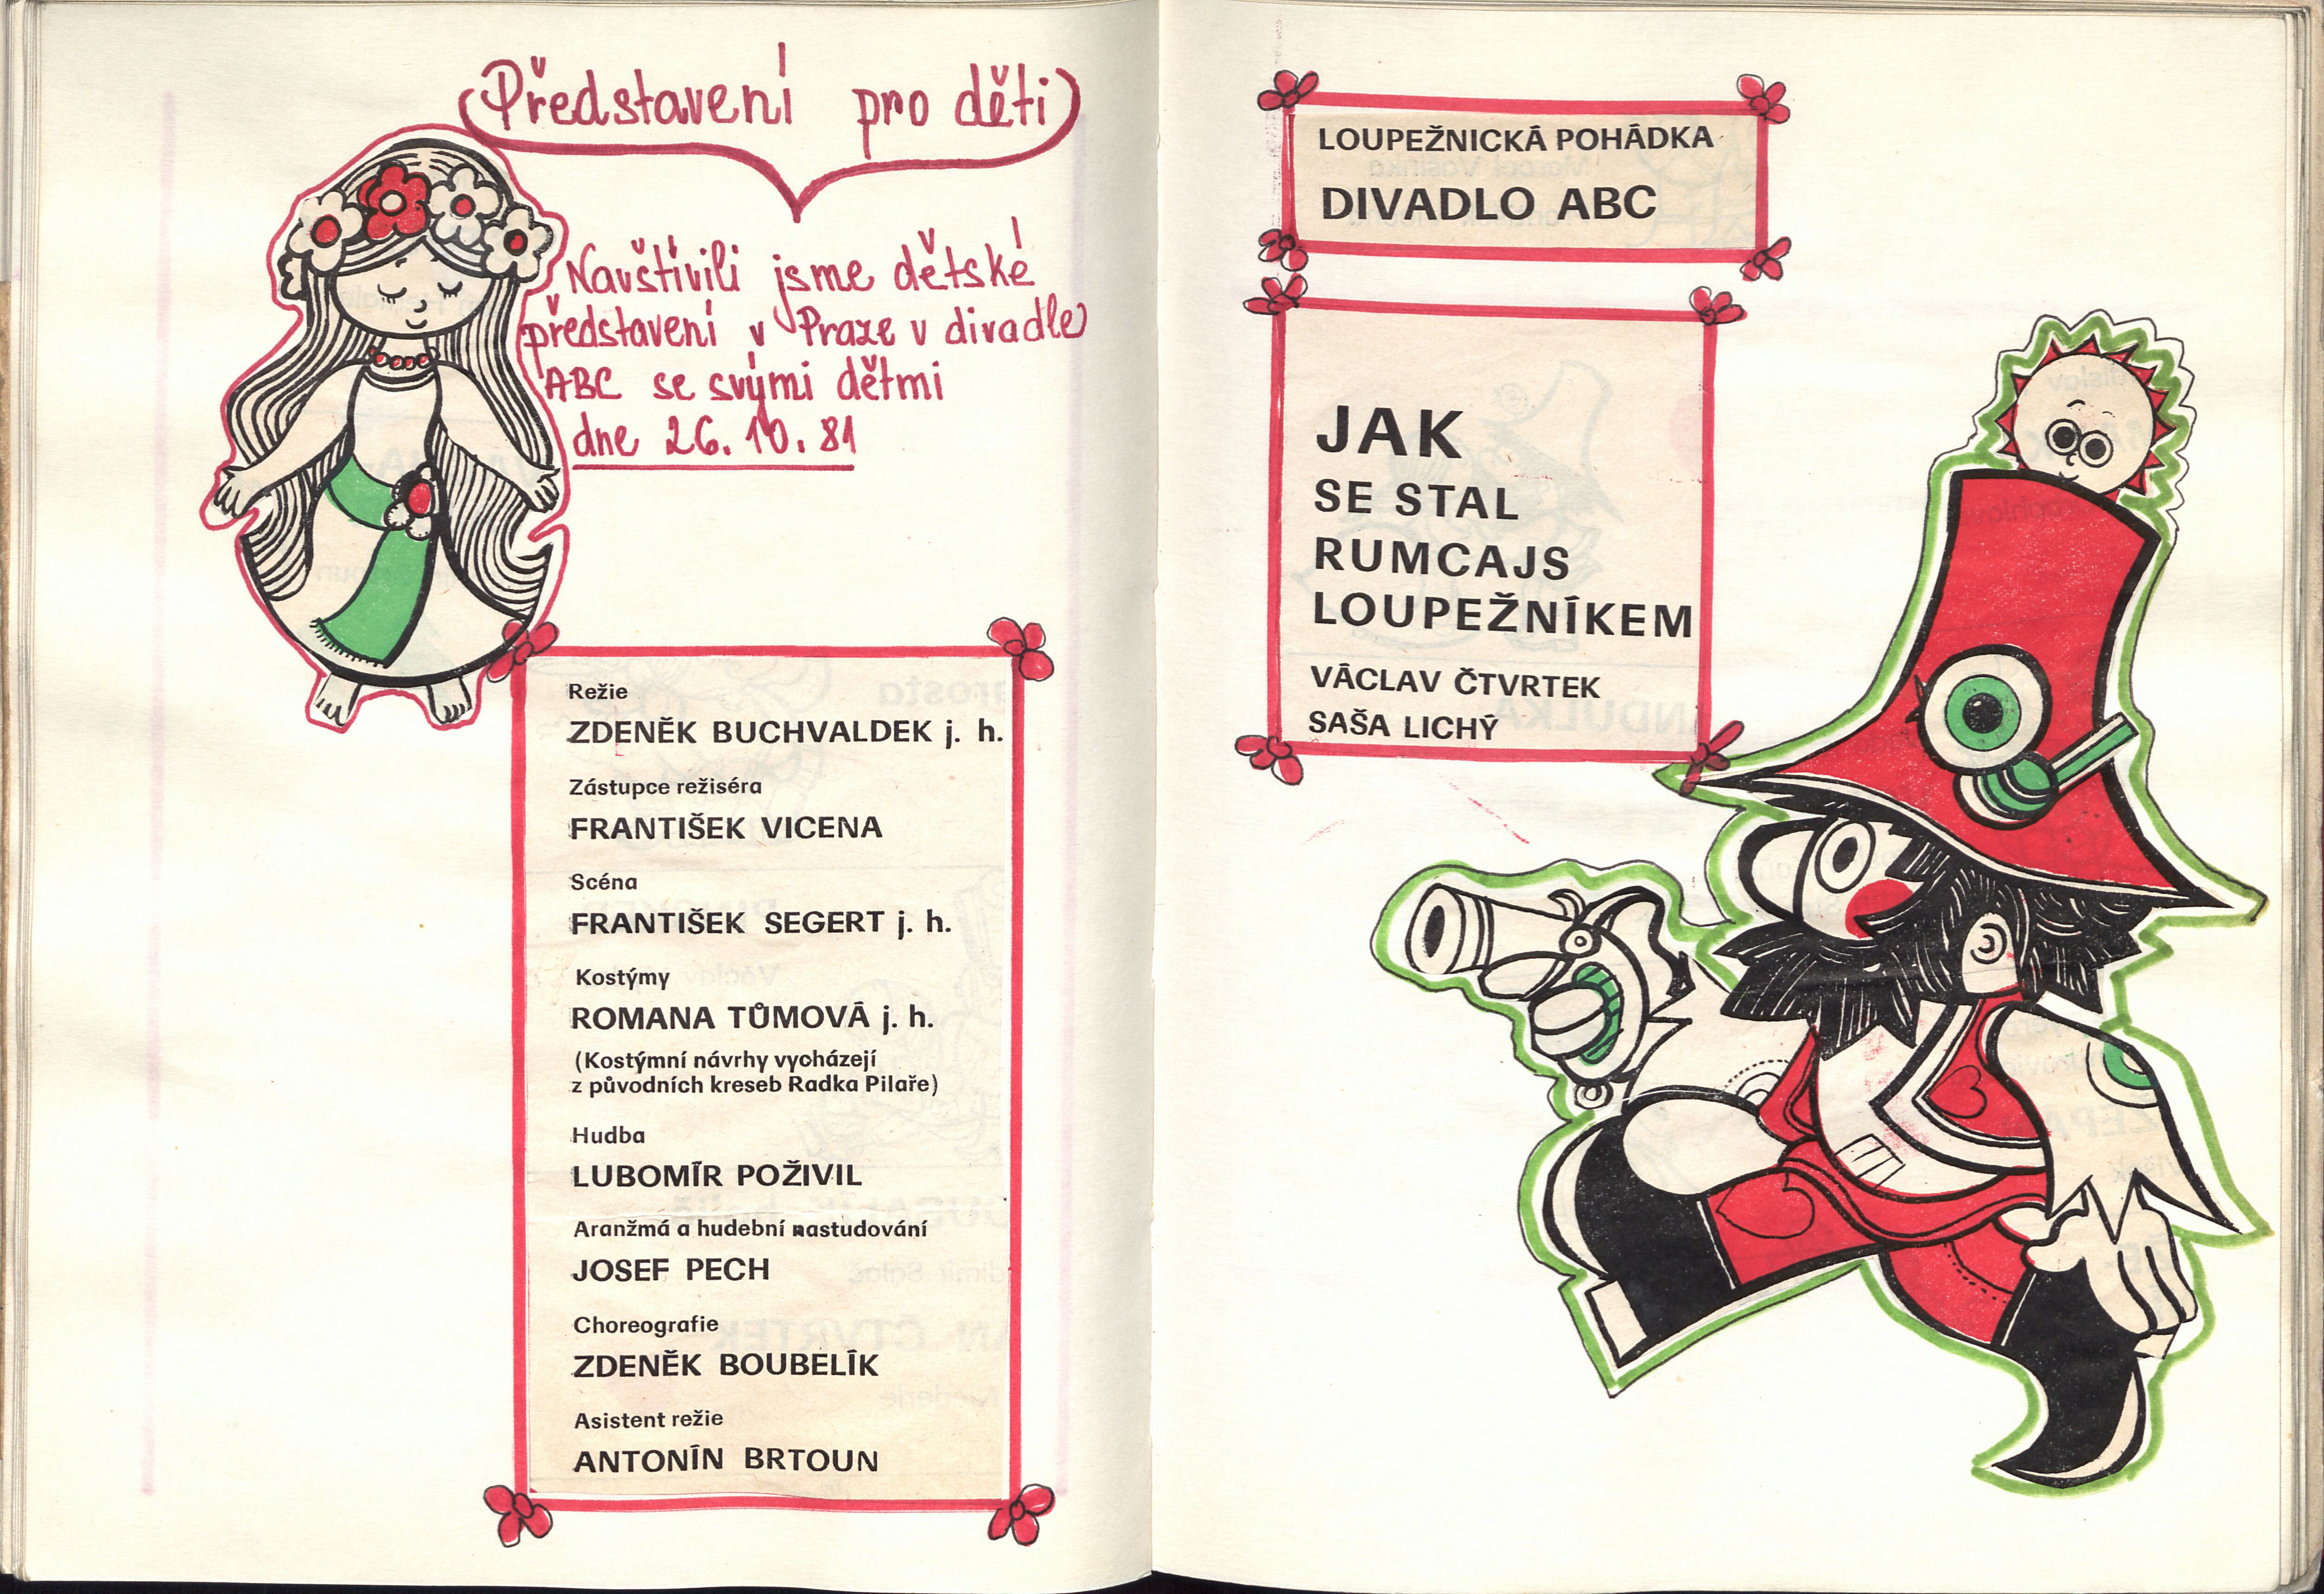 Představení pro děti
Navštívili jsme dětské
představení v Praze v divadle
ABC se svými dětmi
dne 26. 10. 81
Režie
ZDENĚK BUCHVALDEK j. h.
Zástupce režiséra
FRANTIŠEK VICENA
Scéna
FRANTIŠEK SEGERT j. h.
Kostýmy
ROMANA TŮMOVÁ j. h.
(Kostýmní návrhy vycházejí
z původních kreseb Radka Pilaře)
Hudba
LUBOMÍR POŽIVIL
Aranžmá a hudební nastudování
JOSEF PECH
Choreografie
ZDENĚK BOUBELÍK
Asistent režie
ANTONÍN BRTOUN
LOUPEŽNICKÁ POHÁDKA
DIVADLO ABC
JAK
SE STAL
RUMCAJS
LOUPEŽNÍKEM
VÁCLAV ČTVRTEK
SAŠA LICHÝ